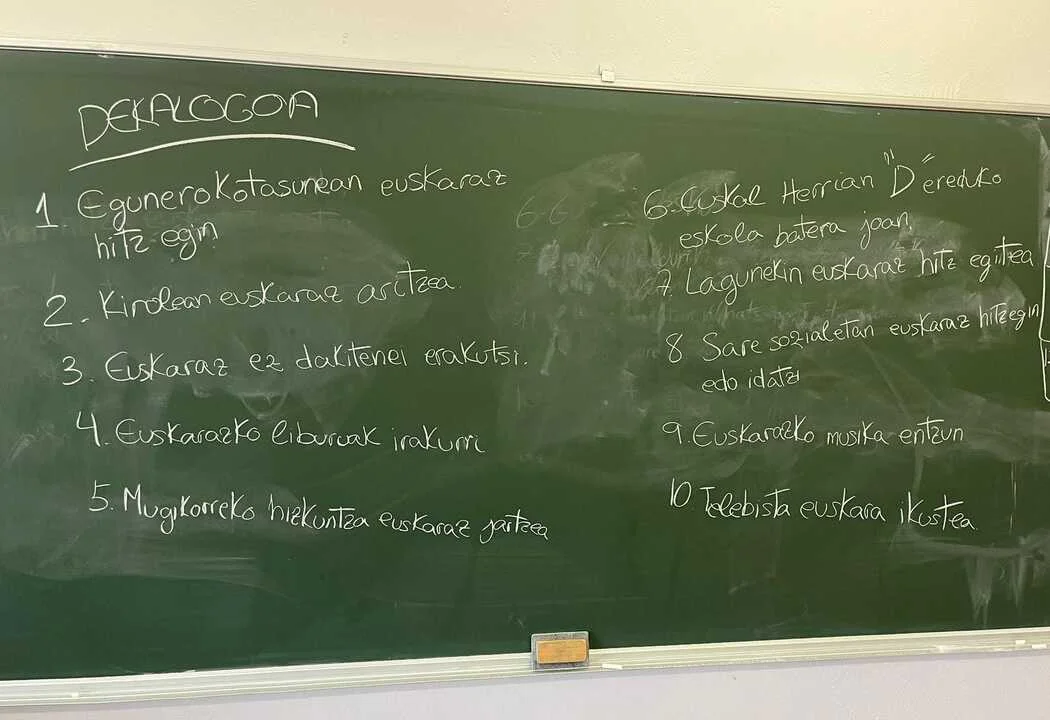 DEKALOGOA
1. Egunerokotasunean euskaraz
hitz egin
2. Kirolean euskaraz aritzea.
3. Euskaraz ez dakitenei erakutsi.
4. Euskarazko liburuak irakurri
5. Mugikorreko hizkuntza euskaraz jartzea
6-Euskal Herrian "D" ereduko
eskola batera joan.
7. Lagunekin euskaraz hitz egitea
8 Sare sozialetan euskaraz hitzegin
edo idatzi
9. Euskarazko musika entzun
10 Telebista euskara ikustea.